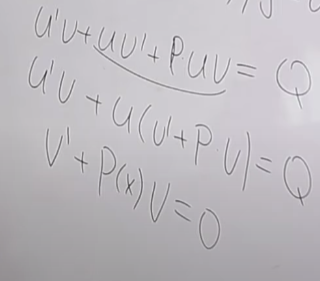 u'v+uv'+P·uv=Q
u'v+u(v'+P·v)=Q
v'+P(x)v=0